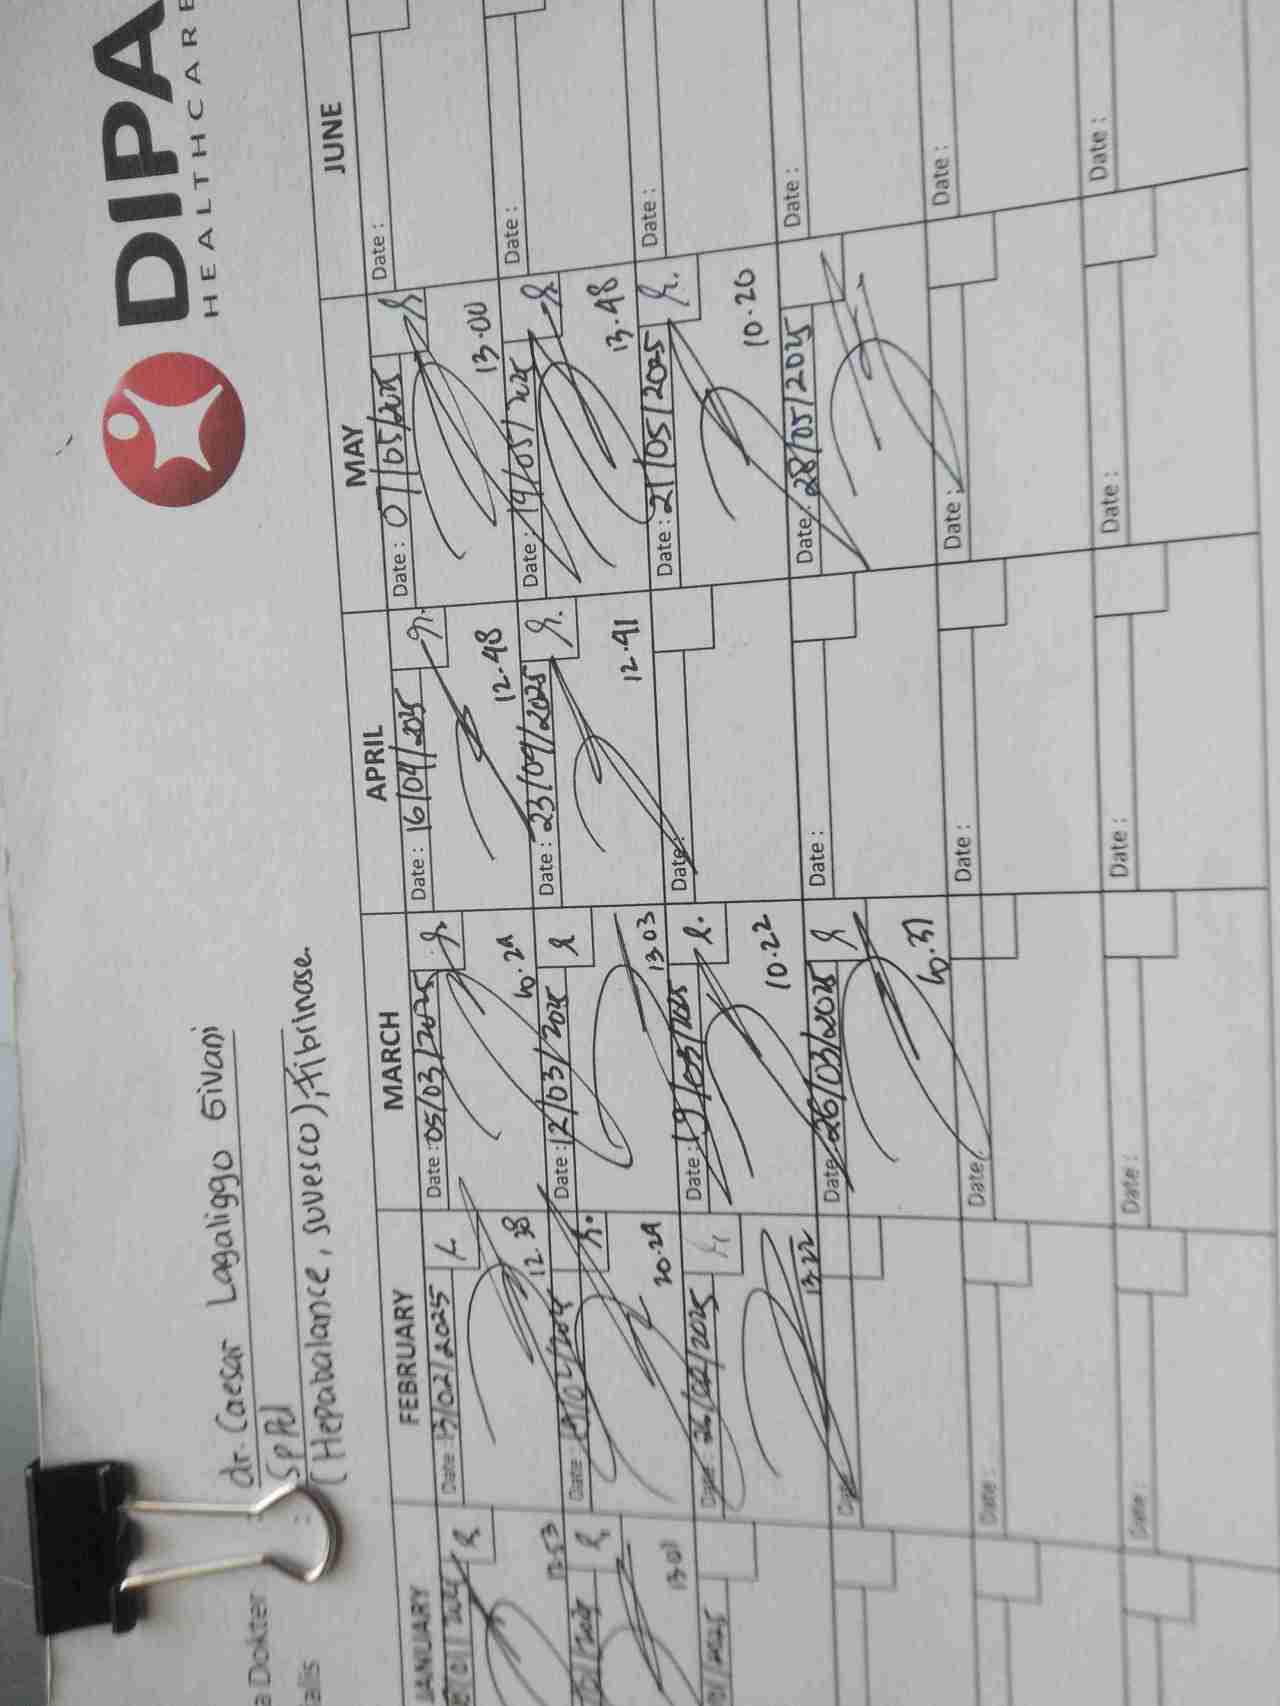 DIPA
HEALTHCARE
a Dokter : dr. Caesar Lagaligo Givani
alis : SpPd
(Hepabalance, suvesco), Fibrinase.
JANUARY FEBRUARY MARCH APRIL MAY JUNE
Date : 13/02/2025 Date : 05/03/2025 Date : 16/04/2025 Date : 07/05/2025 Date :
13.53 12.38 10.29 12.48 13.00
Date : Date : 12/03/2025 Date : 23/04/2025 Date : 14/05/2025 Date :
13.01 20.29 13.03 12.41 13.48
01/2025 Date : 26/02/2025 Date : 19/03/2025 Date : Date : 21/05/2025 Date :
13.22 10.22 10.20
Date : Date : 26/03/2025 Date : Date : 28/05/2025 Date :
10.37
Date : Date : Date : Date : Date :
Date : Date : Date : Date : Date :